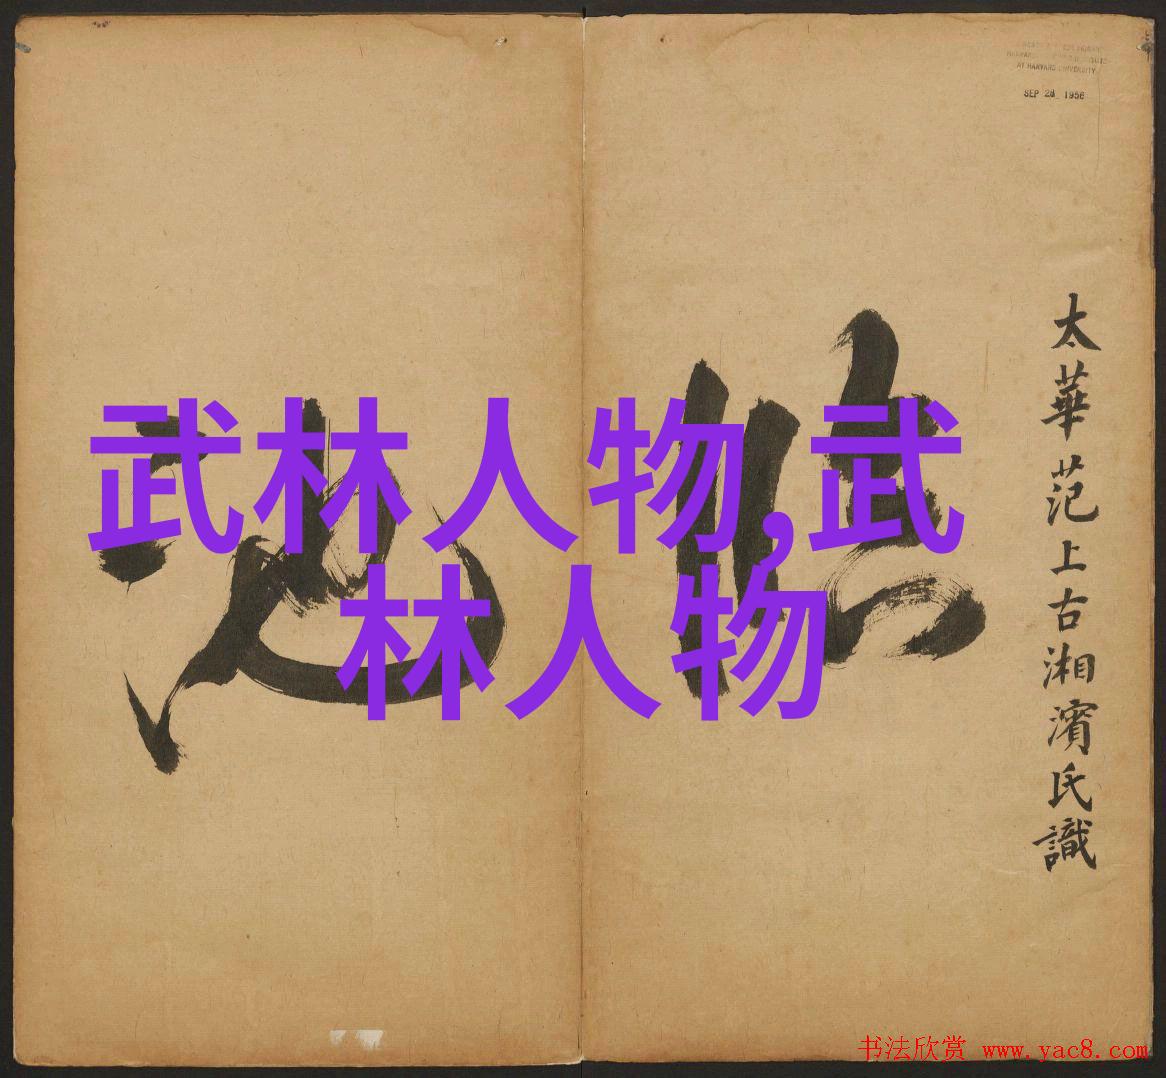 AT HARVARD UNIVERSITY
SEP 28 1956
太華范上古湘濱氏識
武林人物,武
林人物
书法欣赏 www.yac8.com